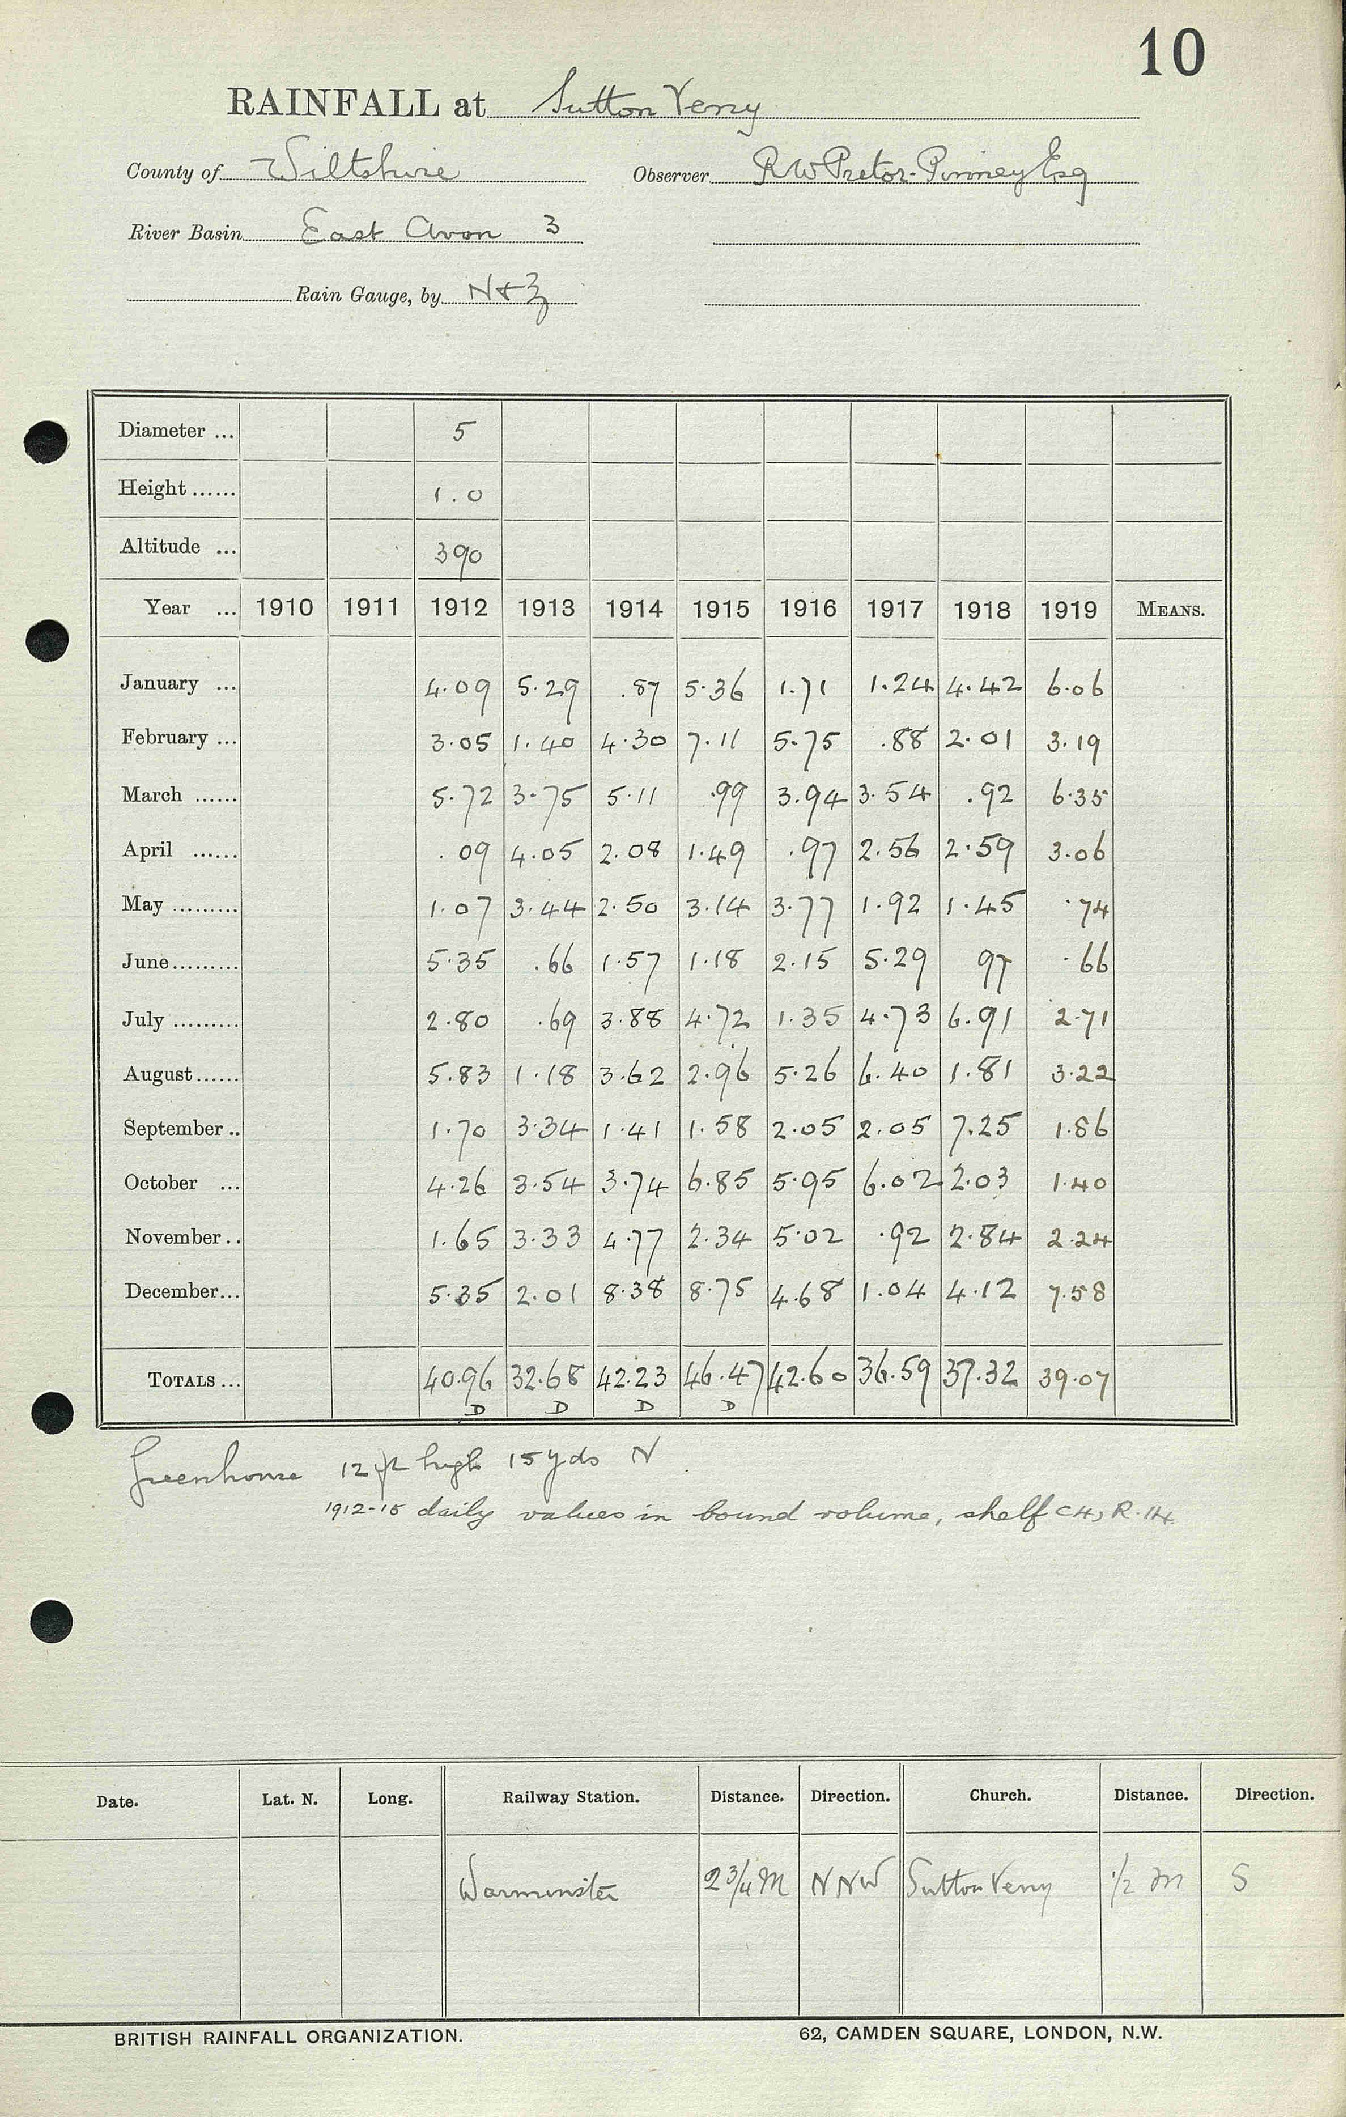 10
RAINFALL at Sutton Veny
County of Wiltshire Observer R W Pretor-Pinney Esq
River Basin East Avon 3
Rain Gauge, by N+Z
Diameter ... 5
Height ...... 1.0
Altitude ... 390
Year ... 1910 1911 1912 1913 1914 1915 1916 1917 1918 1919 MEANS.
January ... 4.09 5.29 .87 5.36 1.71 1.24 4.42 6.06
February ... 3.05 1.40 4.30 7.11 5.75 .88 2.01 3.19
March ...... 5.72 3.75 5.11 .99 3.94 3.54 .92 6.35
April ...... .09 4.05 2.08 1.49 .97 2.56 2.59 3.06
May ......... 1.07 3.44 2.50 3.14 3.77 1.92 1.45 .74
June......... 5.35 .66 1.57 1.18 2.15 5.29 97 .66
July ......... 2.80 .69 3.88 4.72 1.35 4.73 6.91 2.71
August...... 5.83 1.18 3.62 2.96 5.26 6.40 1.81 3.22
September .. 1.70 3.34 1.41 1.58 2.05 2.05 7.25 1.86
October ... 4.26 3.54 3.74 6.85 5.95 6.02 2.03 1.40
November .. 1.65 3.33 4.77 2.34 5.02 .92 2.84 2.24
December... 5.35 2.01 8.38 8.75 4.68 1.04 4.12 7.58
TOTALS ... 40.96 32.68 42.23 46.47 42.60 36.59 37.32 39.07
D D D D
Greenhouse 12 ft high 15 yds N
1912-15 daily values in bound volume, shelf C4, R.14
Date. Lat. N. Long. Railway Station. Distance. Direction. Church. Distance. Direction.
Warminster 2 3/4 M NNW Sutton Veny 1/2 m S
BRITISH RAINFALL ORGANIZATION. 62, CAMDEN SQUARE, LONDON, N.W.